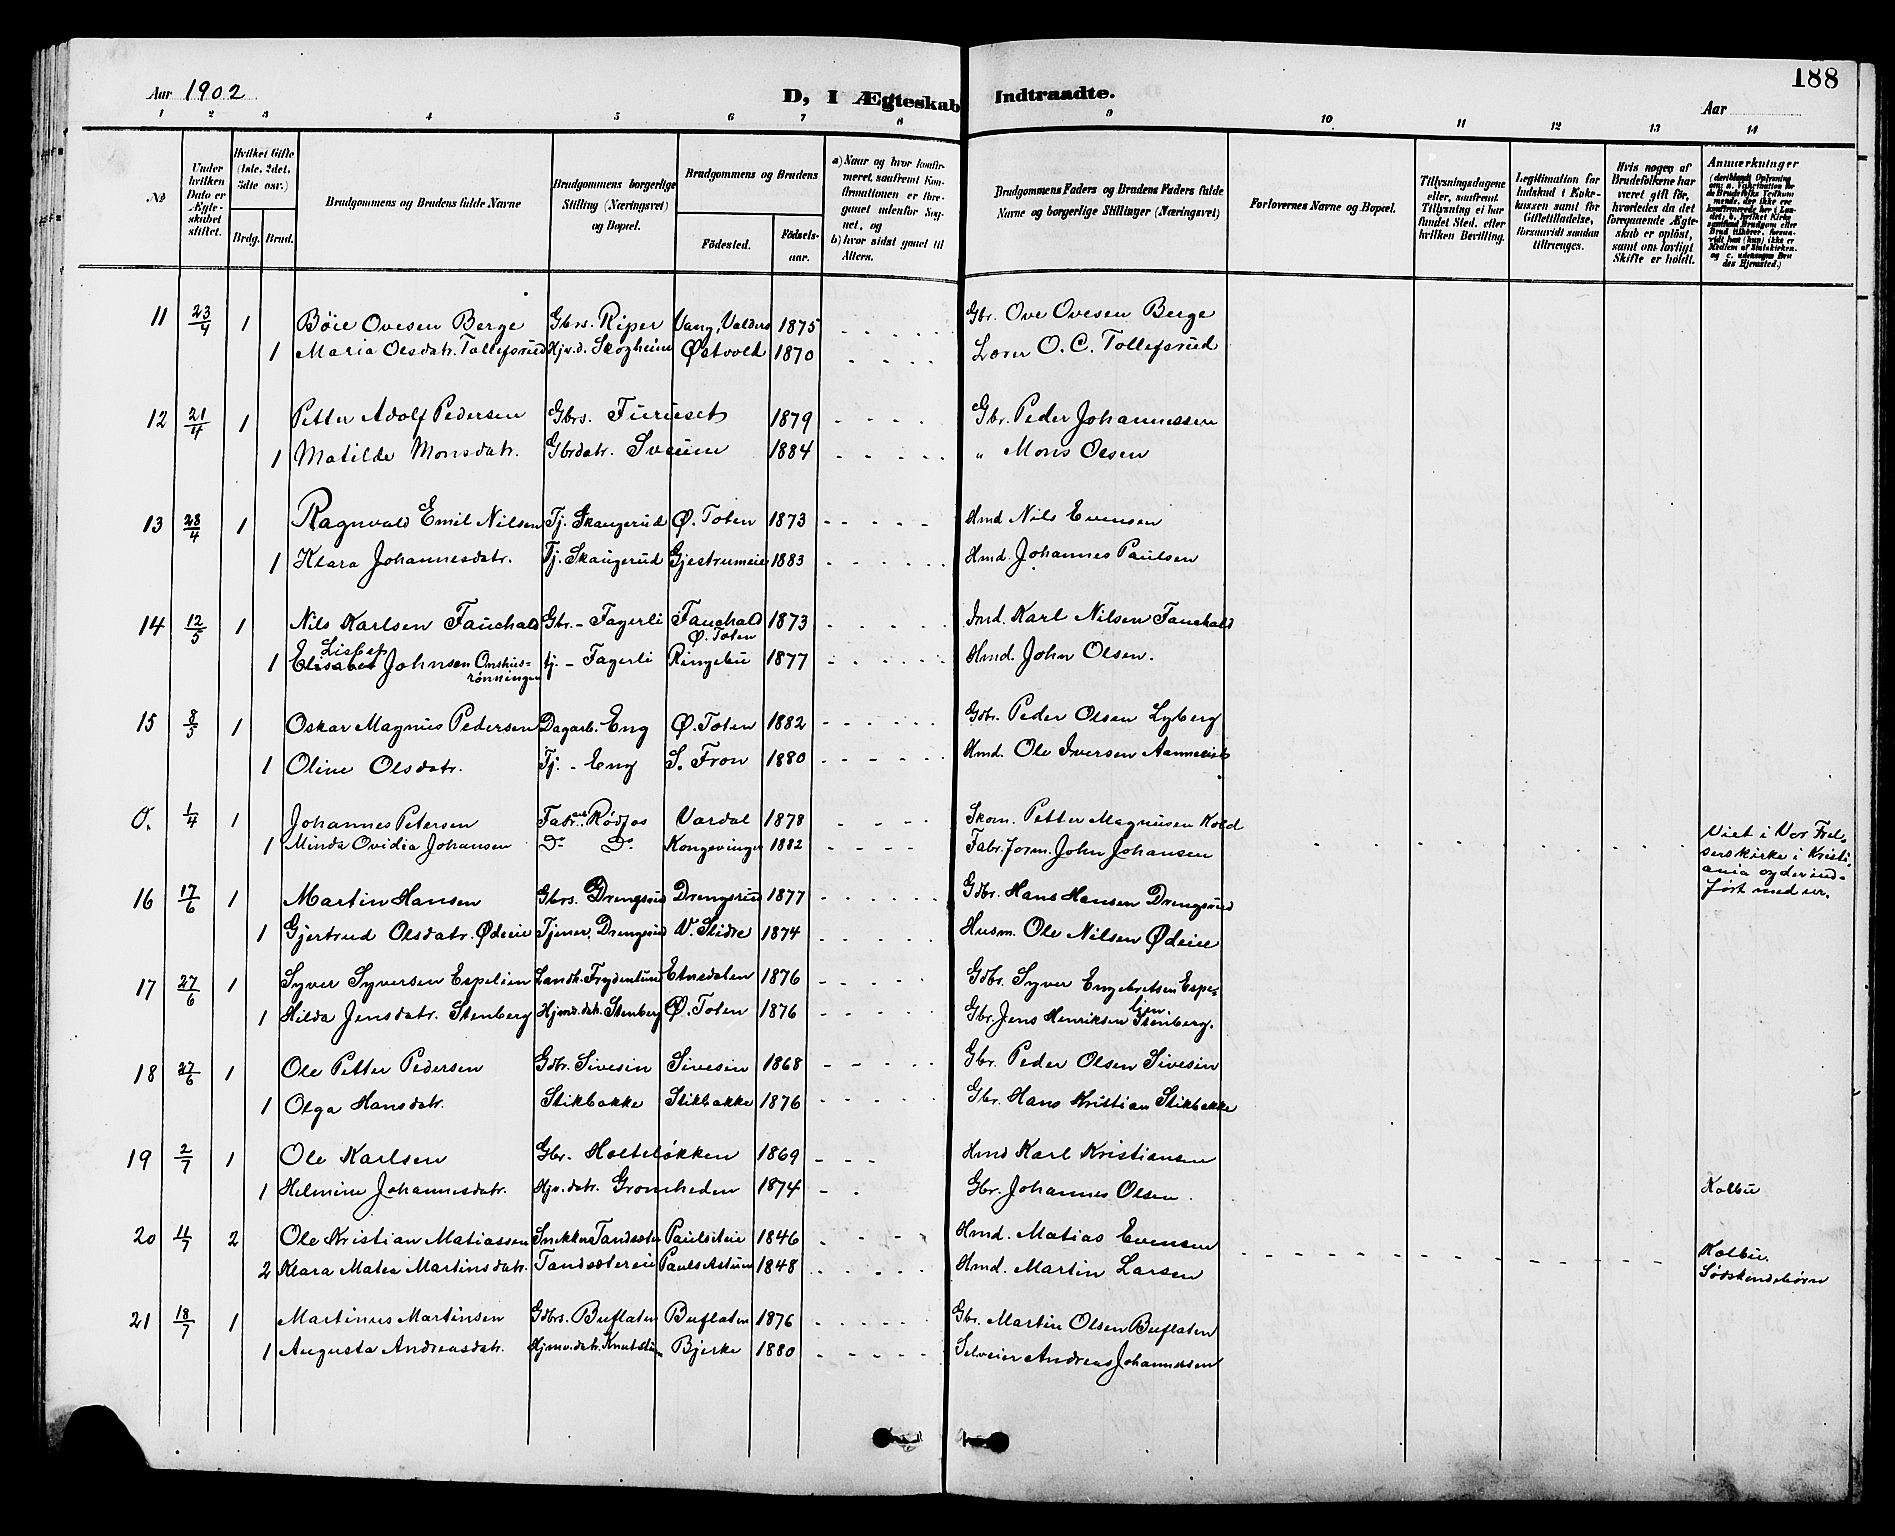 188
Aar 1902
D, I Ægteskab Indtraadte.
Aar
1 2 3 4 5 6 7 8 9 10 11 12 13 14
No
Under hvilken Dato er Ægteskabet stiftet.
Hvilket Gifte (1ste, 2det, 3die osv.)
Brdg. Brud.
Brudgommens og Brudens fulde Navne
Brudgommens borgerlige Stilling (Næringsvei) og Bopæl.
Brudgommens og Brudens
Fødested.
Fødselsaar.
a) Naar og hvor konfirmeret, saafremt Konfirmationen er foregaaet udenfor Sognet, og
b) hvor sidst gaaet til Alters.
Brudgommens Faders og Brudens Faders fulde Navne og borgerlige Stillinger (Næringsvei)
Forlovernes Navne og Bopæl.
Tillysningsdagene eller, saafremt Tillysning ei har fundet Sted, efter hvilken Bevilling.
Legitimation for Indskud i Enkekassen samt for Giftetilladelse, forsaavidt saadan tiltrænges.
Hvis nogen af Brudefolkene har været gift før, hvorledes da det foregaaende Ægteskab er opløst, samt om lovligt Skifte er holdt.
Anmærkninger
11 23/4 1 Bøie Ovesen Berge Gbrs. Riper Vang, Valders 1875 Gbr. Ove Ovesen Berge
1 Maria Olsdatr. Tollefsrud Hjv.d. Skogheim Østvold 1870 Lærer O. C. Tollefsrud
12 21/4 1 Petter Adolf Pedersen Gbrs. Furuset 1879 Gbr. Peder Johannessen
1 Matilde Monsdatr. Gbrdatr. Sveum 1884 " Mons Olsen
13 28/4 1 Ragnvald Emil Nilsen Tj. Skaugerud Ø. Toten 1873 Hmd Nils Evensen
1 Klara Johannesdatr. Tj. Skaugerud Gjestrumeie 1883 Hmd. Johannes Paulsen
14 12/5 1 Nils Karlsen Fauchald Gbr. - Fagerli Fauchald Ø. Toten 1873 Ind. Karl Nilsen Fauchald
1 Elisabet Lisbet Johnsen Onshusrønningen tj. - Fagerli Ringebu 1877 Hmd. John Olsen.
15 8/5 1 Oskar Magnus Pedersen Dagarb. Eng Ø. Toten 1882 Gdbr. Peder Olsen Lyberg
1 Oline Olsdatr. Tj. - Eng S. Fron 1880 Hmd. Ole Iversen
O. 1/4 1 Johannes Petersen Fabr.arb. Rødfos Vardal 1878 Skom. Petter Magnusen Kold
1 Minda Ovidia Johansen Do Do Kongsvinger 1882 Fabr.form. John Johansen
Viet i Vor Frelserskirke i Kristiania og der indført med nr.
16 17/6 1 Martin Hansen Gbrs. Drengsrud Drengsrud 1877 Gdbr. Hans Hansen Drengsrud
1 Gjertrud Olsdatr. Ødeie Tjener, Drengsrud V. Slidre 1874 Husm. Ole Nilsen Ødeie
17 27/6 1 Syver Syversen Espelien Landh. Frydenlund Etnedalen 1876 Gdbr. Syver Engebretsen Espelien.
1 Hilda Jensdatr. Stenberg Hjmv.datr. Stenberg Ø. Toten 1876 Gbr. Jens Henriksen Stenberg.
18 27/6 1 Ole Petter Pedersen Gdbr. Sivesin Sivesin 1868 Gbr. Peder Olsen Sivesin
1 Olga Hansdatr. Stikbakke Stikbakke 1876 Gbr. Hans Kristian Stikbakke
19 2/7 1 Ole Karlsen Gbr. Holteløkken 1869 Hmd Karl Kristiansen
1 Helmine Johannesdatr. Hjv.datr. Grønheden 1874 Gbr. Johannes Olsen. Kolbu
20 11/7 2 Ole Kristian Matiassen Snekker Tandsæter Paulseie 1846 Hmd. Matias Evensen
2 Klara Matea Martinsdatr. Tandsætereie 1848 Hmd. Martin Larsen
Kolbu. Sødskendebørn
21 18/7 1 Martinus Martinsen Gdbrs. Buflaten Buflaten 1876 Gbr. Martin Olsen Buflaten
1 Augusta Andreasdatr. Hjmv.datr. Bjerke 1880 Selveier Andreas Johannesen